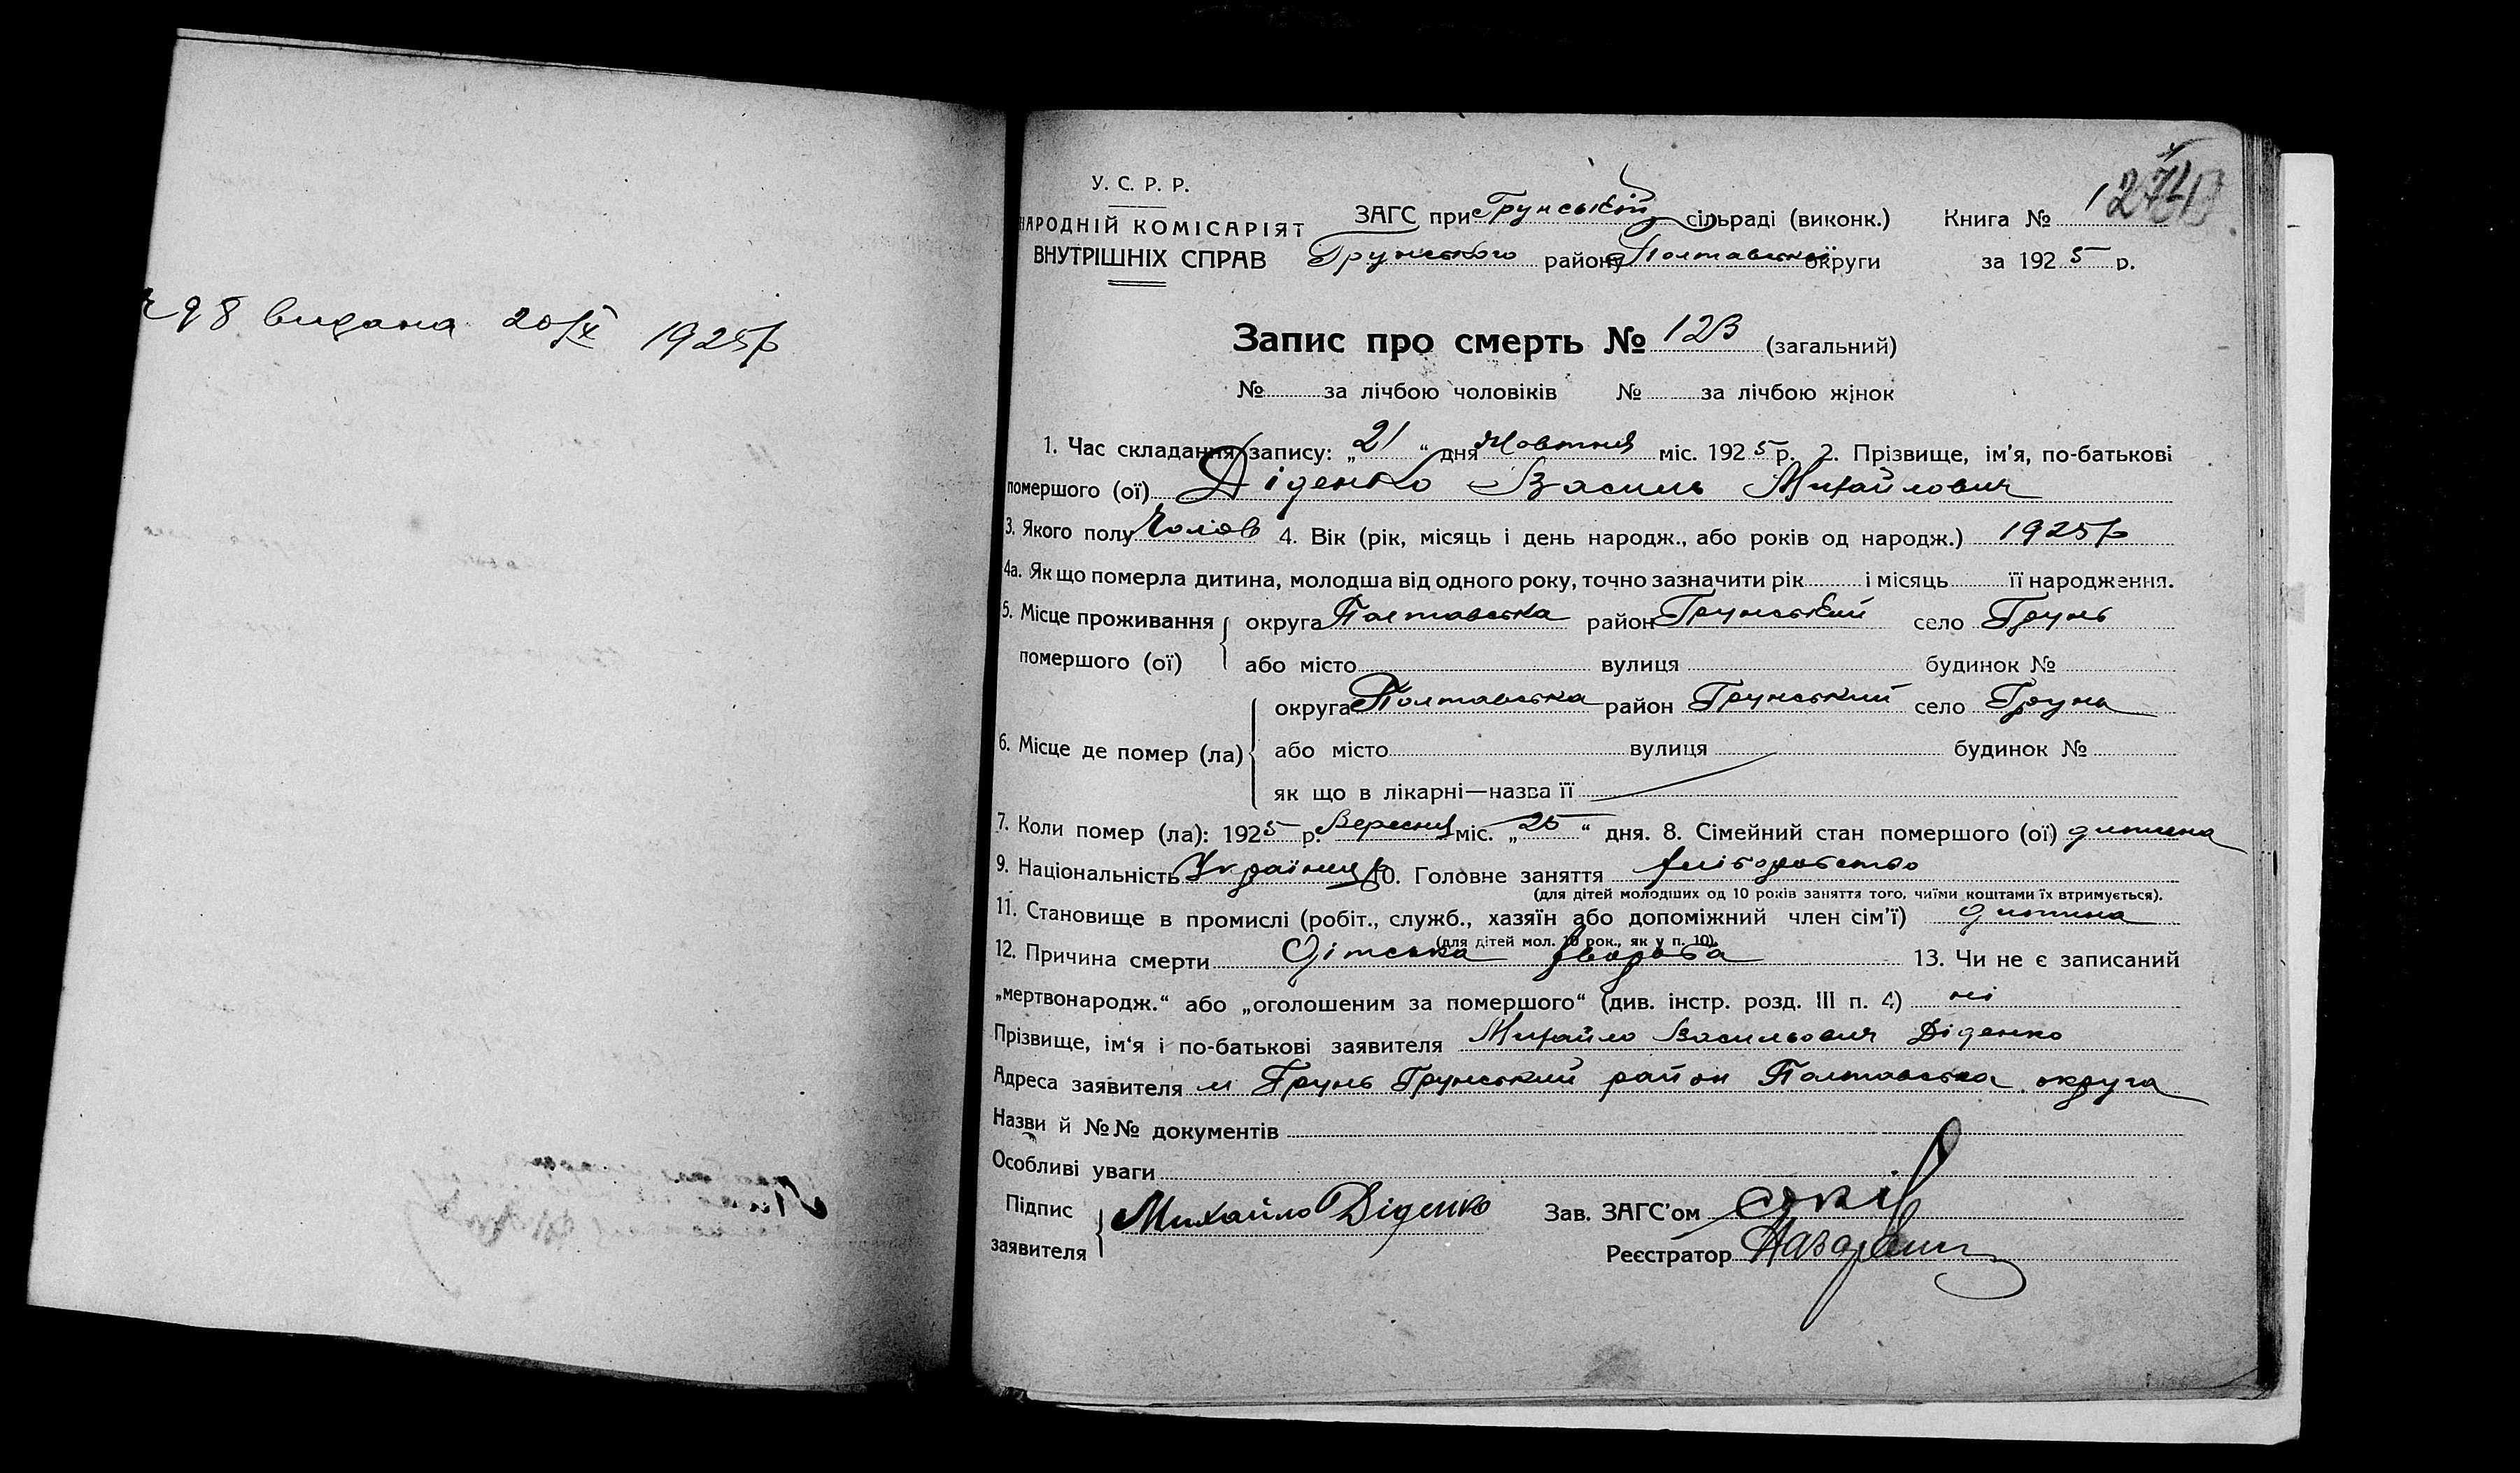 98 видана 20/X 1925 р
У. С. Р. Р.
НАРОДНІЙ КОМІСАРІЯТ
ВНУТРІШНІХ СПРАВ
ЗАГС при Грунській сільраді (виконк.) Книга № 1
Грунського району Полтавської округи за 1925 р.
Запис про смерть № 123 (загальний)
№ за лічбою чоловіків № за лічбою жінок
1. Час складання запису: „21“ дня Жовтня міс. 1925 р. 2. Прізвище, ім'я, по-батькові
помершого (ої) Діденко Василь Михайлович
3. Якого полу Чолов 4. Вік (рік, місяць і день народж., або років од народж.) 1925 р
4а. Як що померла дитина, молодша від одного року, точно зазначити рік і місяць її народження.
5. Місце проживання округа Полтавська район Грунський село Грунь
помершого (ої) або місто вулиця будинок №
округа Полтавська район Грунський село Грунь
6. Місце де помер (ла) або місто вулиця будинок №
як що в лікарні—назва її
7. Коли помер (ла): 1925 р. Вересня міс. „25“ дня. 8. Сімейний стан помершого (ої) дитина
9. Національність Українец 10. Головне заняття хліборобство
(для дітей молодших од 10 років заняття того, чиїми коштами їх втримується).
11. Становище в промислі (робіт., служб., хазяїн або допоміжний член сім'ї) дитина
(для дітей мол. 10 рок., як у п. 10).
12. Причина смерти Дітська хвороба 13. Чи не є записаний
„мертвонародж.“ або „оголошеним за помершого“ (див. інстр. розд. III п. 4) ні
Прізвище, ім'я і по-батькові заявителя Михайло Васильович Діденко
Адреса заявителя м Грунь Грунський район Полтавська округа
Назви й №№ документів
Особливі уваги
Підпис
заявителя Михайло Діденко Зав. ЗАГС'ом
Реєстратор